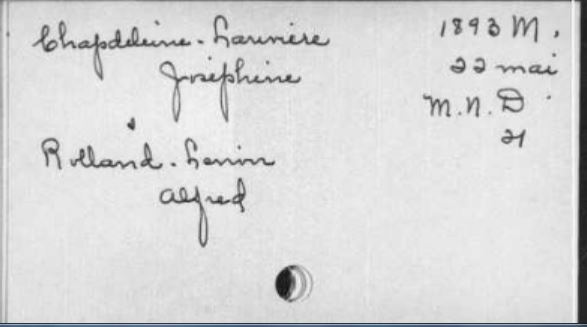 Chapdeleine - Lariviere
1893 M.
Josephine
22 mai
M.N.D
&
21
Rolland - Lenoir
Alfred